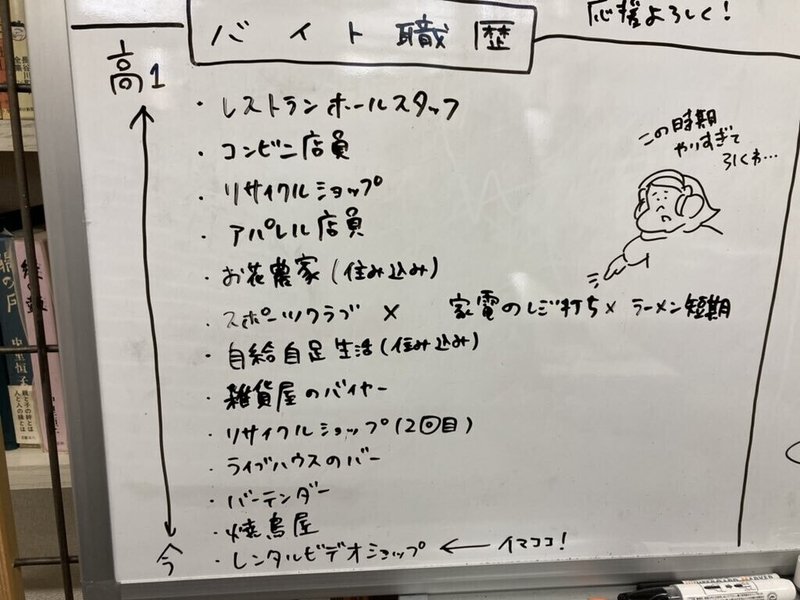 応援よろしく!
バイト職歴
高1
・レストランホールスタッフ
・コンビニ店員
・リサイクルショップ
・アパレル店員
・お花農家(住み込み)
・スポーツクラブ × 家電のレジ打ち× ラーメン短期
・自給自足生活(住み込み)
・雑貨屋のバイヤー
・リサイクルショップ(2回目)
・ライブハウスのバー
・バーテンダー
・焼鳥屋
今 ・レンタルビデオショップ ← イマココ!
この時期
やりすぎて
引くわ…